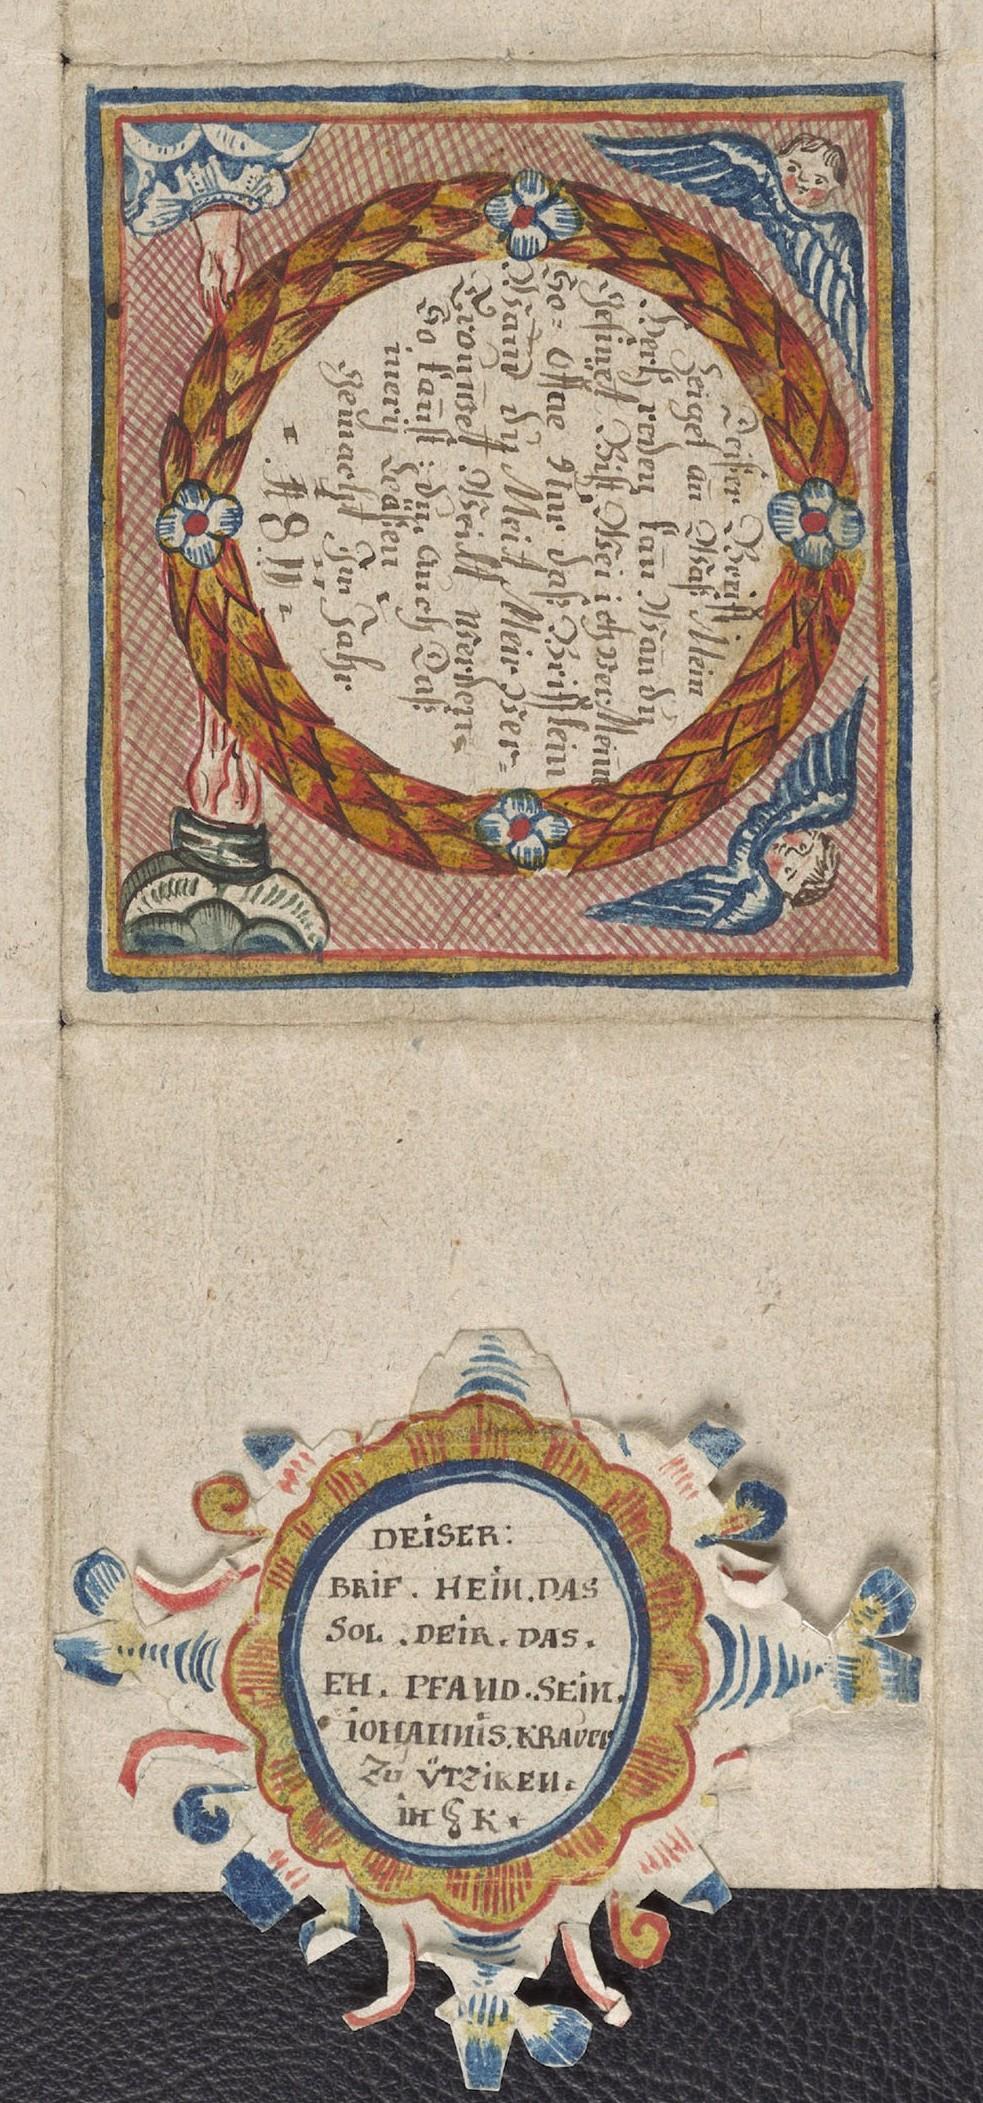 Deiser Breiff
zeiget an Was Mein
Hertz reden kan Wan du
gesinet Bist Wei ich vermeine
So= öffne Ihr das Briff lein
Wand du Meit Meir Ver=
Weist werden=
So kanst: du, auch Das
mery leäsen
gemacht Im Jahr
18
DEISER:
BRIF. HEIN. DAS
SOL. DEIR. DAS.
EH. PFAND. SEIN.
IOHANNIS. KRAUER
Zu ÜTZIKEN.
IH § K